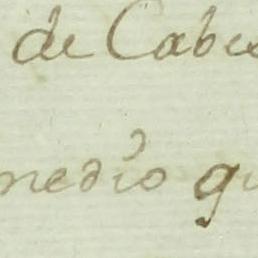 de Cabe
medio qu